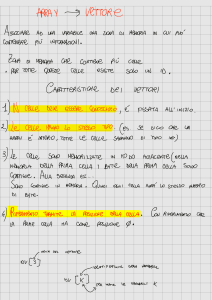 ARRAY → VETTORE
ASSOCIARE AD UNA VARIABILE UNA ZONA DI MEMORIA IN CUI PUO'
CONTENERE PIÙ INFORMAZIONI.
ZONA DI MEMORIA CHE CONTIENE PIÙ CELLE
PER TUTTE QUESTE CELLE ESISTE SOLO UN ID.
CARATTERISTICHE DEI VETTORI
1) N° CELLE DEVE ESSERE CONOSCIUTO, E FISSATA ALL'INIZIO.
2) LE CELLE HANNO LO STESSO TIPO. (ES. SE DICO CHE UN
ARRAY È INTERO, TUTTE LE CELLE SARANNO DI TIPO INT)
3) LE CELLE SONO MEMORIZZATE IN MODO ADIACENTE (NELLA
MEMORIA DELLA PRIMA CELLA I BYTE DELLA PRIMA DELLA
CONTINUE. ALLA SECONDA ECC.
SONO CONTINUE IN MEMORIA. QUINDI OGNI CELLA AVRÀ LO STESSO NUMERO
DI BYTE.
4) RIFERIMENTO TRAMITE LA POSIZIONE DELLA CELLA. CON RIFERIMENTO CHE
LA PRIMA CELLA HA COME POSIZIONE 0.
DEL VETTORE
[3]
[K]
VARIABILE